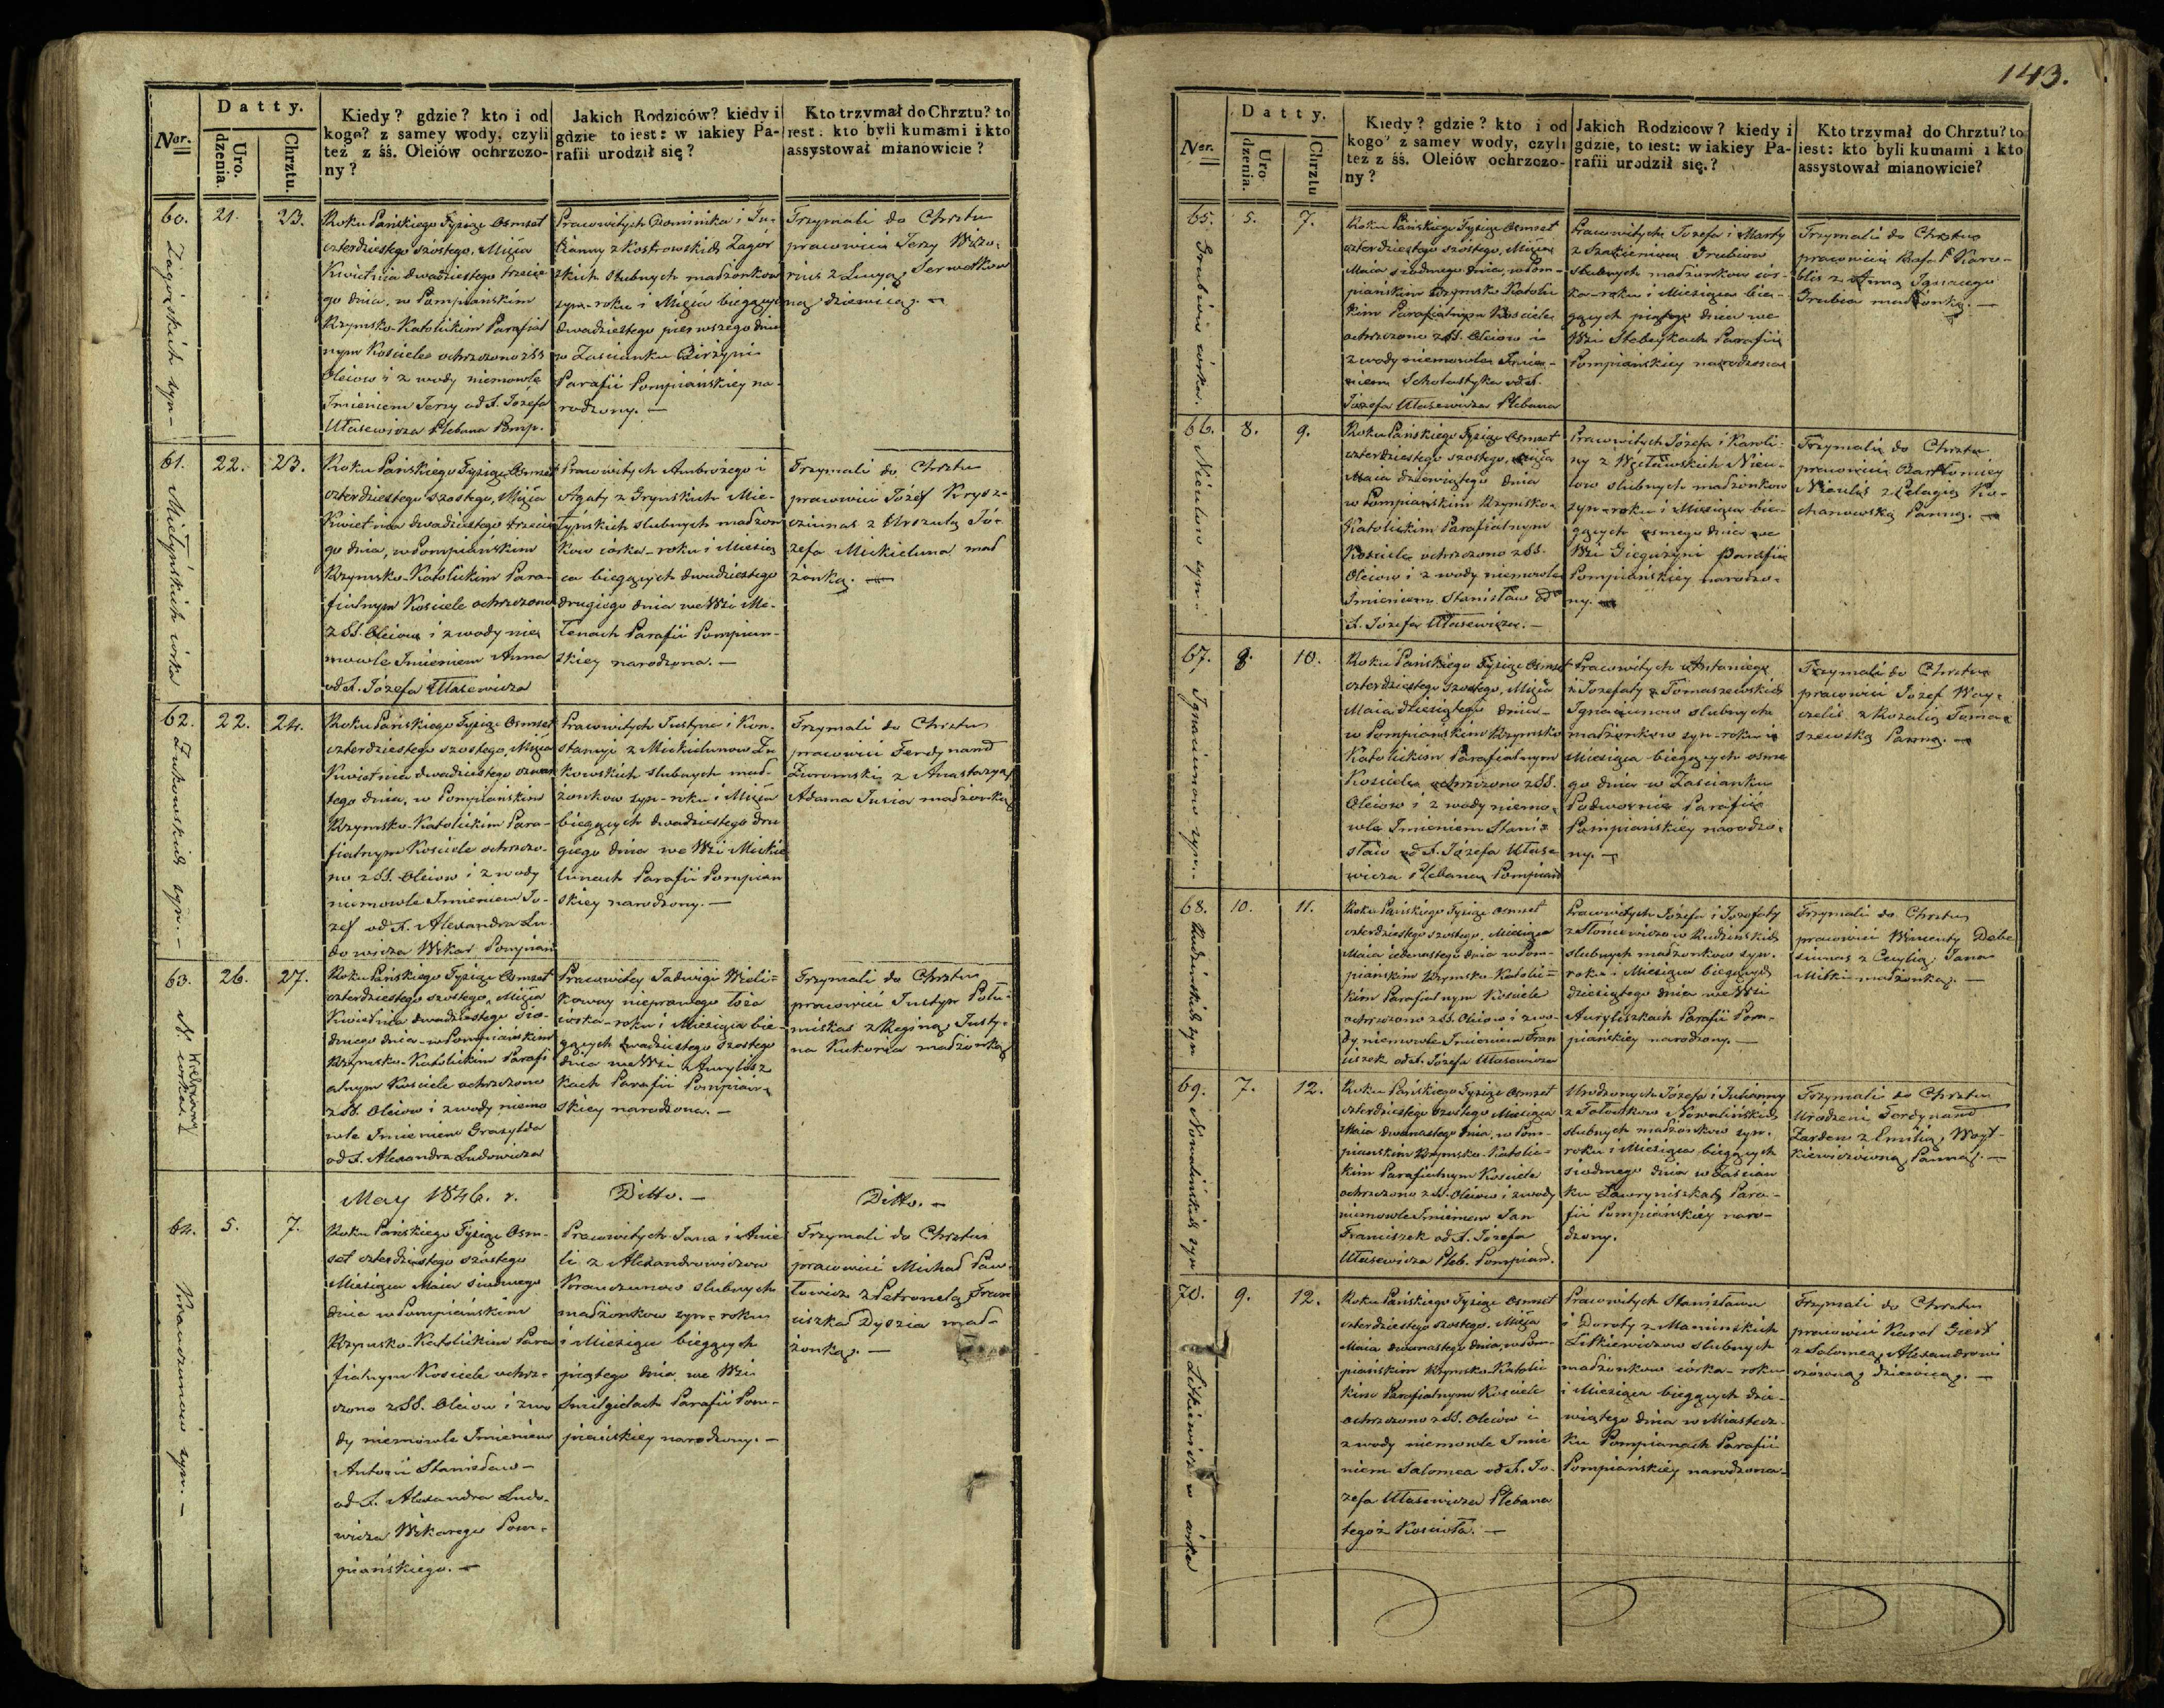 Ner.
Datty.
Uro.
dzenia.
Chrztu.
Kiedy? gdzie? kto i od
kogo? z samey wody, czyli
też z śś. Oleiów ochrzczo-
ny?
Jakich Rodziców? kiedy i
gdzie to iest: w iakiey Pa-
rafii urodził się?
Kto trzymał do Chrztu? to
iest: kto byli kumami i kto
assystował mianowicie?
60.
Zagórskich syn-
21.
23.
Roku Pańskiego Tysiąc Osmset
czterdziestego szóstego, Mięśca
Kwietnia dwadziestego trzecie
go dnia, w Pompiańskim
Rzymsko-Katolickim Parafial
nym Kościele ochrzczono z SS
Oleiow i z wody niemowle
Imieniem Jerzy od X. Józefa
Utasewicza Plebana Pomp.
Pracowitych Dominika i Ju-
lianny z Kostrowskich Zagór
skich slubnych małżonkow
syn-roku i Mięśca bieżących
dwadziestego pierwszego dnia
w Zascianku Birżyni
Parafii Pompiańskiey na-
rodzony. —
Trzymali do Chrztu
pracowici Jerzy
z Łucyą
ną dziewicą. —
61.
córka
22.
23.
Roku Pańskiego Tysiąc Osmset
czterdziestego szostego, Mięśca
Kwietnia dwadziestego trzecie
go dnia, w Pompiańskim
Rzymsko-Katolickim Para-
fialnym Kosciele ochrzczono
z SS. Oleiow i z wody nie
mowle Imieniem Anna
od X. Józefa Utasewicza
Pracowitych Ambrożego i
Agaty z Gryńskich Mie-
tyńskich slubnych małżon
kow córka-roku i Miesią
ca bieżących dwudziestego
drugiego dnia we Wsi Mi-
łenach Parafii Pompian-
skiey narodzona. —
Trzymali do Chrztu
pracowici Józef Krysz-
cziunas z Urszulą Jó-
zefa Mickieluna mał
żonką. —
62.
Żukowskich syn. —
22.
24.
Roku Pańskiego Tysiąc Osmset
czterdziestego szostego, Mięśca
Kwietnia dwadziestego czwar
tego dnia, w Pompiańskim
Rzymsko-Katolickim Para-
fialnym Kosciele ochrzczo-
no z SS. Oleiow i z wody
niemowle Imieniem Jo-
zef od X. Alexandra Lu-
dowicza Wikar. Pompian
Pracowitych Justyna i Kon-
stancyi z Mickielunow Żu
kowskich slubnych mał-
żonkow syn-roku i Mięśca
bieżących dwadziestego dru
giego dnia we Wsi Mickie
lunach Parafii Pompian
skiey narodzony. —
Trzymali do Chrztu
pracowici Ferdynand
Żuromski z Anastazyą
Adama Jusia małżonką
63.
N. córka
26.
27.
Roku Pańskiego Tysiąc Osmset
czterdziestego szostego, Mięśca
Kwietnia dwadziestego sio-
dmego dnia-w Pompiańskim
Rzymsko-Katolickim Parafi
alnym Kosciele ochrzczono
z SS. Oleiow i z wody niemo
wle Imieniem Grasylda
od X. Alexandra Ludowicza
Pracowitey Jadwigi Wieli-
kowny nieprawego łoża
córka-roku i Miesiąca bie-
gących dwudziestego szostego
dnia we Wsi Aurylisz
kach Parafii Pompiań-
skiey narodzona. —
Trzymali do Chrztu
pracowici Justyn Polu-
miskas z Reginą Justy-
na Kukoria małżonką
May 1846. r.
Ditto. —
Ditto. —
64.
Kraudzunow syn. —
5.
7.
Roku Pańskiego Tysiąc Osm-
set czterdziestego szóstego
Miesiąca Maia siodmego
dnia w Pompiańskim
Rzymsko-Katolickim Para
fialnym Kosciele ochrz-
czono z SS. Oleiow i z wo
dy niemówle Imieniem
Antoni Stanisław—
od X. Alexandra Ludo-
wicza Wikarego Pom-
piańskiego. —
Pracowitych Jana i Anie
li z Alexandrowiczow
Kraudzunow slubnych
małżonkow syn-roku
i Miesiąca bieżących
piątego dnia we Wsi
Smilgielach Parafii Pom-
piańskiey narodzony. —
Trzymali do Chrztu
pracowici Michał Paw-
łowicz z Petronelą Fran
ciszka Dyszia mał-
żonką. —
143.
Ner.
Datty.
Uro
dzenia.
Chrztu
Kiedy? gdzie? kto i od
kogo? z samey wody, czyli
też z śś. Oleiów ochrzczo-
ny?
Jakich Rodzicow? kiedy i
gdzie, to iest: w iakiey Pa-
rafii urodził się.?
Kto trzymał do Chrztu? to
iest: kto byli kumami i kto
assystował mianowicie?
65.
Grubiów córka.
5.
7.
Roku Pańskiego Tysiąc Osmset
czterdziestego szóstego, Mięśca
Maia siodmego dnia, w Pom-
piańskim Rzymsko Katolic
kim Parafialnym Kosciele
ochrzczono z SS. Oleiow i
z wody niemowle Imie-
niem Scholastyka od X.
Józefa Utasewicza Plebana
Pracowitych Jozefa i Marty
z Szakieniow Grubiow
slubnych małżonkow cór-
ka-roku i Miesiąca bie-
gących piątego dnia we
Wsi Stabeykach Parafii
Pompiańskiey narodzona
Trzymali do Chrztu
pracowici Rafał Karo-
blis z Anną Ignacego
Grubia małżonką. —
66.
syn.
8.
9.
Roku Pańskiego Tysiąc Osmset
czterdziestego szostego, Mięśca
Maia dziewiątego dnia
w Pompiańskim Rzymsko-
Katolickim Parafialnym
Kosciele ochrzczono z SS.
Oleiow i z wody niemowle
Imieniem Stanisław od
X. Józefa Utasewicza. —
Pracowitych Józefa i Karoli-
ny z Węcławskich Nieu-
low slubnych małżonkow
syn-roku i Miesiąca bie-
gących osmego dnia we
Wsi Gieguzyni Parafii
Pompiańskiey narodzo-
ny. —
Trzymali do Chrztu
pracowici Bartłomiey
Niaulis z Pelagią Ko-
chanowską Panną. —
67.
Ignaciunow syn.
8.
10.
Roku Pańskiego Tysiąc Osmset
czterdziestego szostego, Mięśca
Maia dziesiątego dnia—
w Pompiańskim Rzymsko
Katolickim Parafialnym
Kosciele ochrzczono z SS.
Oleiow i z wody niemo-
wle Imieniem Stani-
sław od X. Józefa Utase
wicza Plebana Pompian
Pracowitych Antoniego
i Jozefaty z Tomaszewskich
Ignaciunow slubnych
małżonkow syn-roku i
Miesiąca bieżących osme
go dnia w Zascianku
Podwornie Parafii
Pompiańskiey narodzo-
ny. —
Trzymali do Chrztu
pracowici Jozef Way-
czelis z Rozalią Toma-
szewską Panną. —
68.
Rudzinskich syn
10.
11.
Roku Pańskiego Tysiąc Osmset
czterdziestego szostego, Miesiąca
Maia iedenastego dnia w Pom-
piańskim Rzymsko-Katolic-
kim Parafialnym Kosciele
ochrzczono z SS. Oleiow i z wo-
dy niemowle Imieniem Fran
ciszek od X. Józefa Utasewicza
Pracowitych Józefa i Jozefaty
z Stoncewiczow Rudzinskich
slubnych małżonkow syn-
roku i Miesiąca bieżących
dziesiątego dnia we Wsi
Auryliszkach Parafii Pom-
piańskiey narodzony. —
Trzymali do Chrztu
pracowici Wincenty Dabe
siunas z Cecylią Jana
Milki małżonką. —
69.
Nowalińskich syn
7.
12.
Roku Pańskiego Tysiąc Osmset
czterdziestego szostego Miesiąca
Maia dwunastego dnia, w Pom-
pianskim Rzymsko-Katolic-
kim Parafialnym Kosciele
ochrzczono z SS. Oleiow i z wody
niemowle Imieniem Jan
Franciszek od X. Józefa
Utasewicza Pleb. Pompian.
Urodzonych Józefa i Julianny
z Tołoczkow Nowalińskich
slubnych małżonkow syn.
roku i Miesiąca bieżących
siodmego dnia w Zascian
ku Ławryniszkaty Para-
fii Pompiańskiey naro-
dzony.
Trzymali do Chrztu
Urodzeni Ferdynand
Żarden z Emilią Woyt-
kiewiczowną Panną. —
70.
Litkiewiczow córka
9.
12.
Roku Pańskiego Tysiąc Osmset
czterdziestego szostego. Mięśca
Maia dwunastego dnia, w Pom-
piańskim Rzymsko-Katolic
kim Parafialnym Kosciele
ochrzczono z SS. Oleiow i
z wody niemowle Imie
niem Salomea od X. Jo-
zefa Utasewicza Plebana
tegoż Kościoła. —
Pracowitych Stanisława
i Doroty z Maminskich
Litkiewiczow slubnych
małżonkow córka-roku
i Miesiąca bieżących dzie-
wiątego dnia w Miastecz-
ku Pompianach Parafii
Pompiańskiey narodzona-
Trzymali do Chrztu
pracowici Karol Giest
z Salomeą Alexandrowi
czówną dziewicą. —